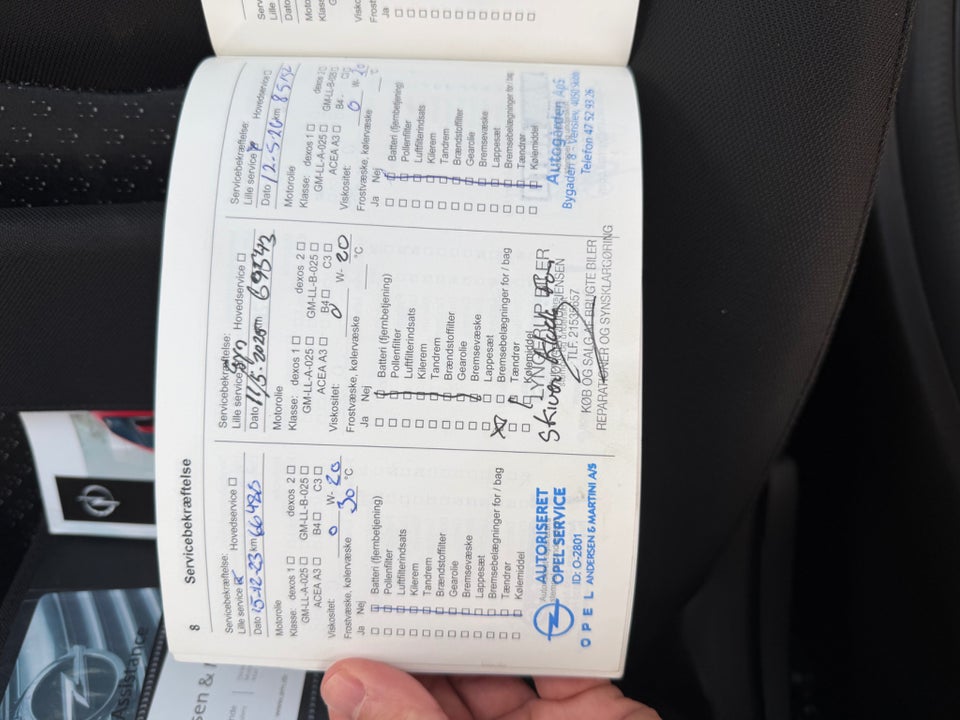 8
Servicebekræftelse
Servicebekræftelse:
Lille service ☒ Hovedservice ☐
Dato 15-12-23 km 66486
Motorolie
Klasse: dexos 1 ☐ dexos 2 ☐
GM-LL-A-025 ☐ GM-LL-B-025 ☐
ACEA A3 ☐ B4 ☐ C3 ☐
Viskositet: 0 W- 20
Frostvæske, kølervæske 30 °C
Ja Nej
Batteri (fjernbetjening)
Pollenfilter
Luftfilterindsats
Kilerem
Tandrem
Brændstoffilter
Gearolie
Bremsevæske
Lappesæt
Bremsebelægninger for / bag
Tændrør
Kølemiddel
AUTORISERET
OPEL SERVICE
ID: O-2801
OPEL ANDERSEN & MARTINI A/S
Servicebekræftelse:
Lille service Syn Hovedservice ☐
Dato 11/5.2025 km 69543
Motorolie
Klasse: dexos 1 ☐ dexos 2 ☐
GM-LL-A-025 ☐ GM-LL-B-025 ☐
ACEA A3 ☐ B4 ☐ C3 ☐
Viskositet: 0 W- 20
Frostvæske, kølervæske °C
Ja Nej
Batteri (fjernbetjening)
Pollenfilter
Luftfilterindsats
Kilerem
Tandrem
Brændstoffilter
Gearolie
Bremsevæske
Lappesæt
Bremsebelægninger for / bag
Tændrør
Kølemiddel
Skiver
LYNGERUP BILER
TLF. 21538657
KØB OG SALG AF BRUGTE BILER
REPARATIONER OG SYNSKLARGØRING
Servicebekræftelse:
Lille service Hovedservice ☐
Dato 12-5.26 km 85152
Motorolie
Klasse: dexos 1 ☐ dexos 2 ☐
GM-LL-A-025 ☐ GM-LL-B-025 ☐
ACEA A3 ☐ B4
Viskositet: 0 W- 20
Frostvæske, kølervæske °C
Ja Nej
Batteri (fjernbetjening)
Pollenfilter
Luftfilterindsats
Kilerem
Tandrem
Brændstoffilter
Gearolie
Bremsevæske
Lappesæt
Bremsebelægninger for / bag
Tændrør
Kølemiddel
Autogården ApS
Bygaden 8 - Venslev, 4050 Skibby
Telefon 47 52 93 26
Assistance